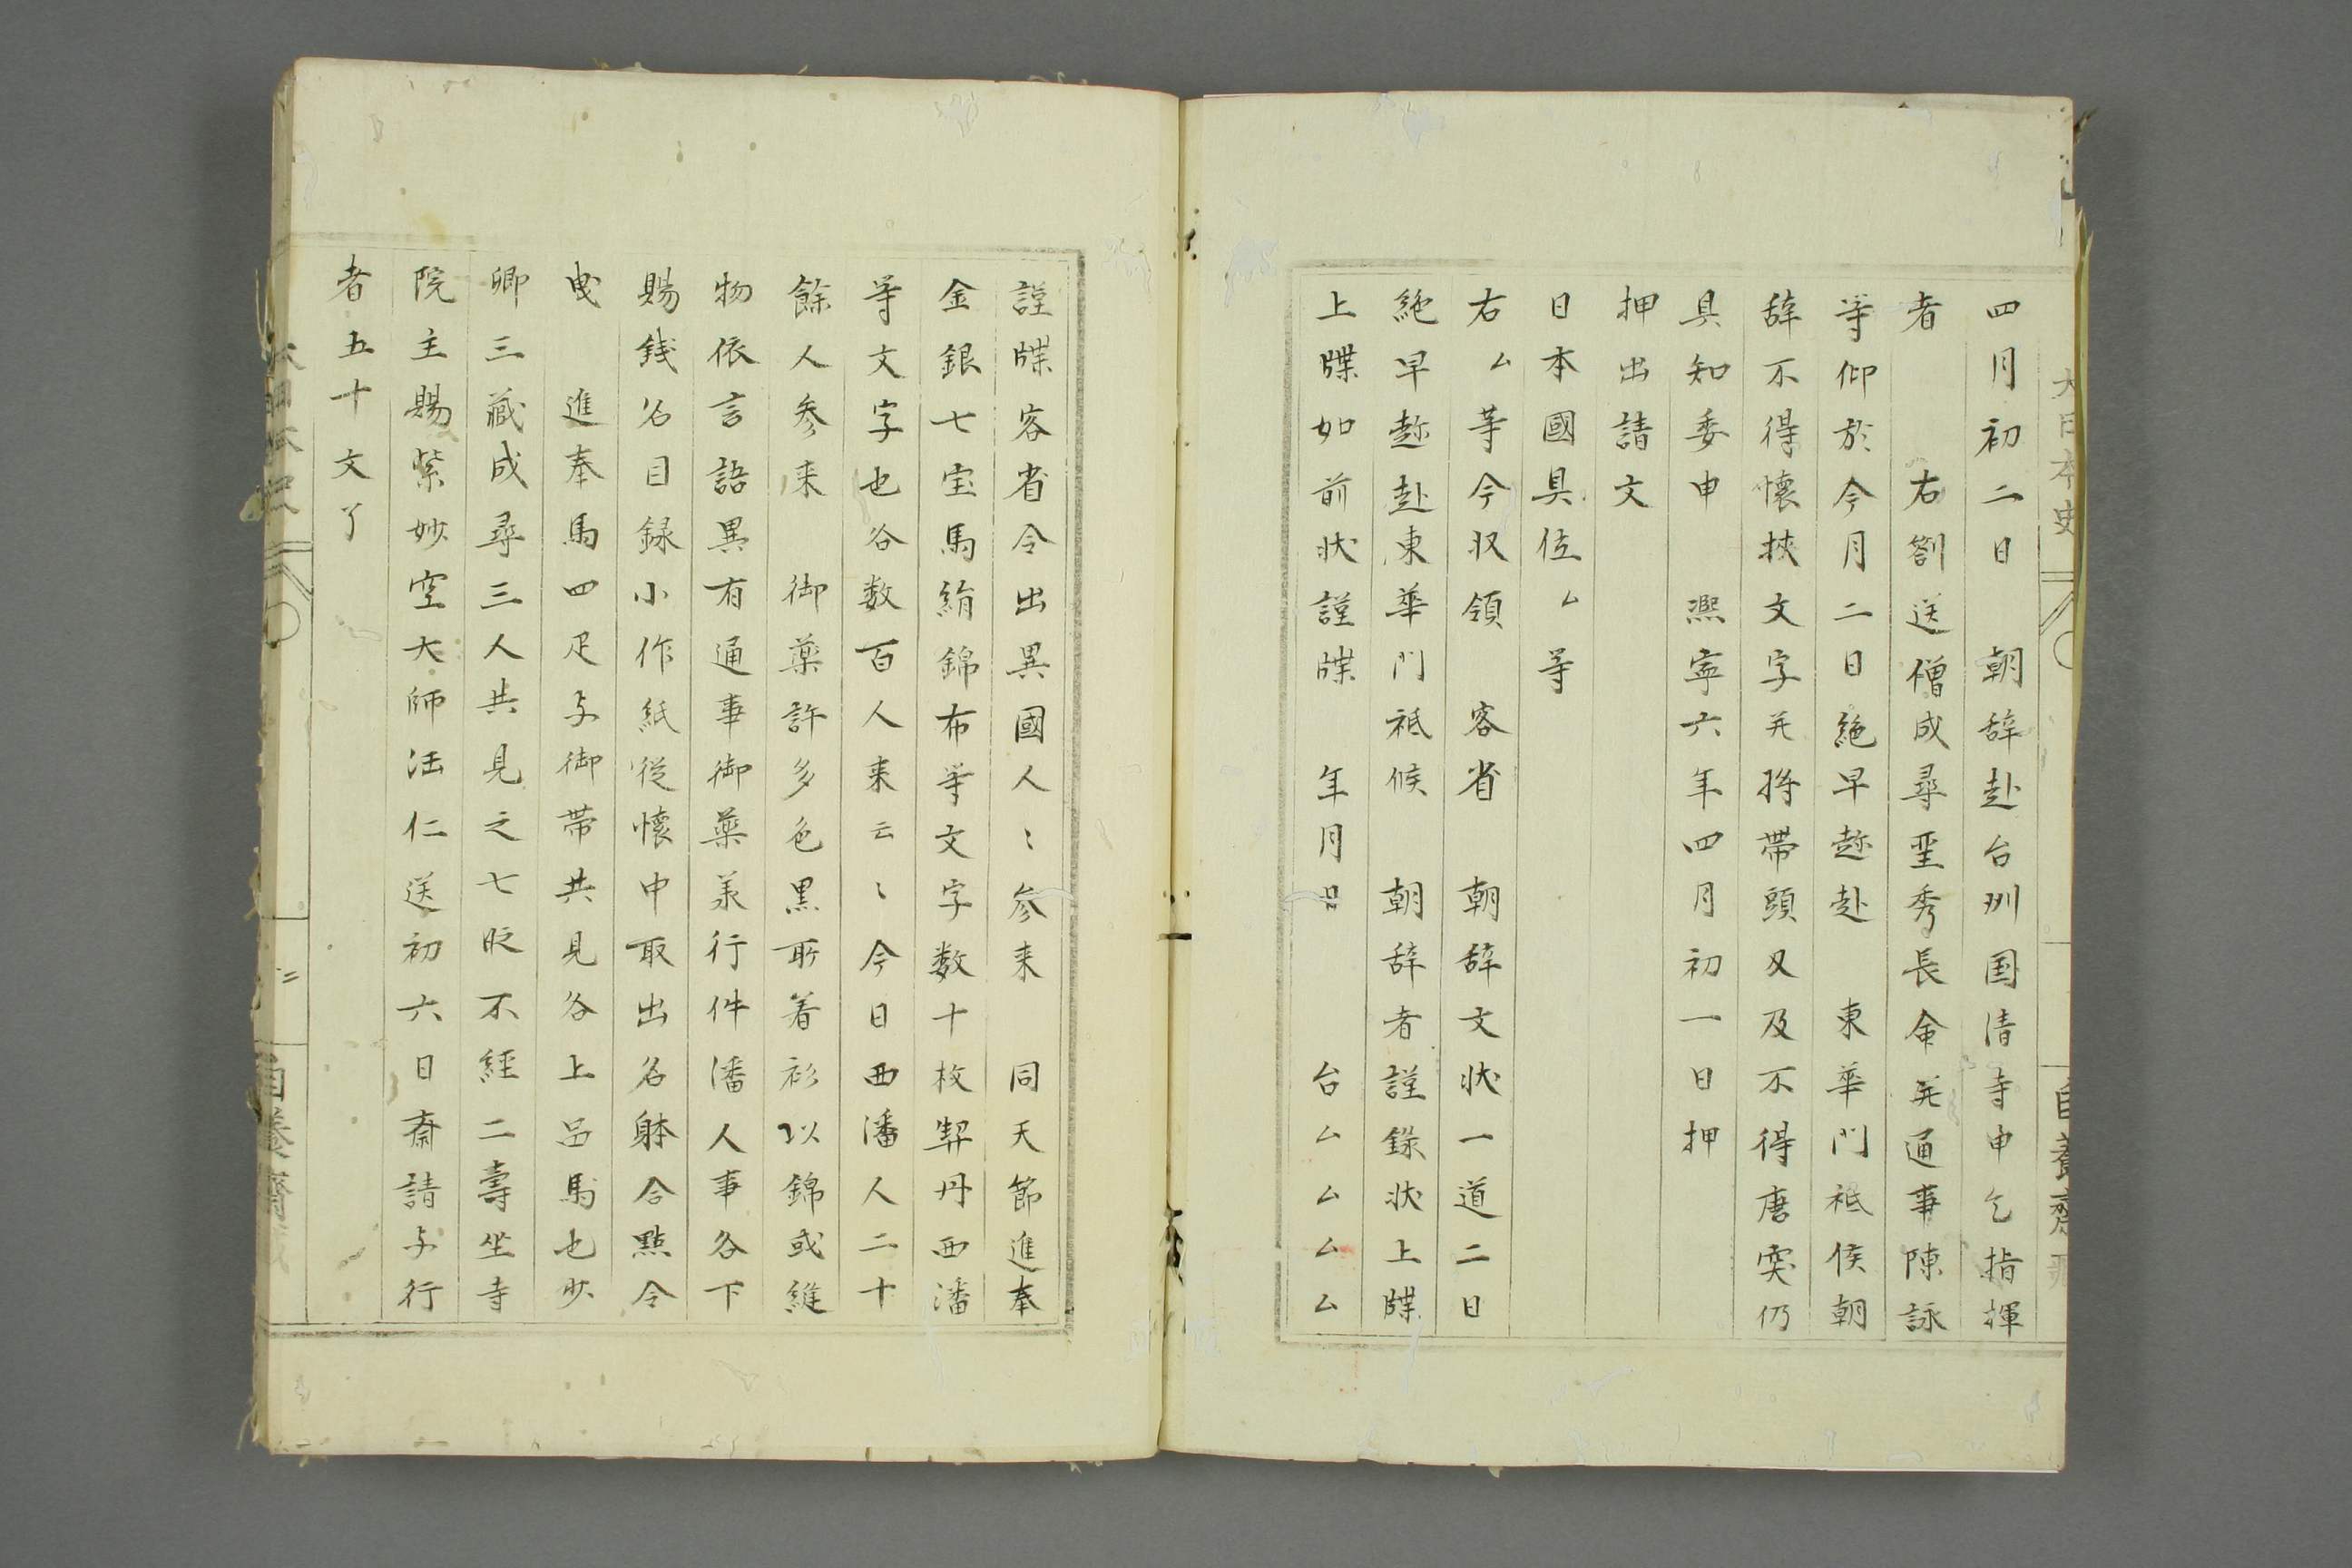 四月初二日　朝辞赴台州国清寺申乞指揮
者　　右劄送僧成尋聖秀長命并通事陳詠
等仰於今月二日絶早趂赴　東華門祗候朝
辞不得懐挟文字并将帯頭又及不得唐突仍
具知委申　熈寧六年四月初一日押
押出請文
日本國具位ム等
右ム等今収領　客省　朝辞文状一道二日
絶早趂赴東華門祗候　朝辞者謹録状上牒
上牒如前状謹牒　年月日　　台ムムムム
謹牒客省令出異國人〻参来　同天節進奉
金銀七宝馬絹錦布等文字数十枚契丹西潘
等文字也谷数百人来云〻今日西潘人二十
餘人参来　御薬許多色黒所着衫以錦或維
物依言語異有通事御薬義行件潘人事各下
賜銭名目録小作紙従懐中取出名躰合點令
曳　進奉馬四疋与御帯共見各上品馬也少
卿三蔵成尋三人共見之七眤不経二壽坐寺
院主賜紫妙空大師法仁送初六日斎請与行
者五十文了
大日本史
自養齋